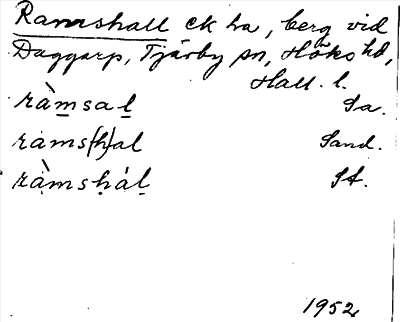 Ramshall ek ha, berg vid
Daggarp, Tjärby sn, Höks hd,
Hall. l.
ràmsaḻ Sa.
rams(h)al Sand.
ràmsḥáḻ St.
1952